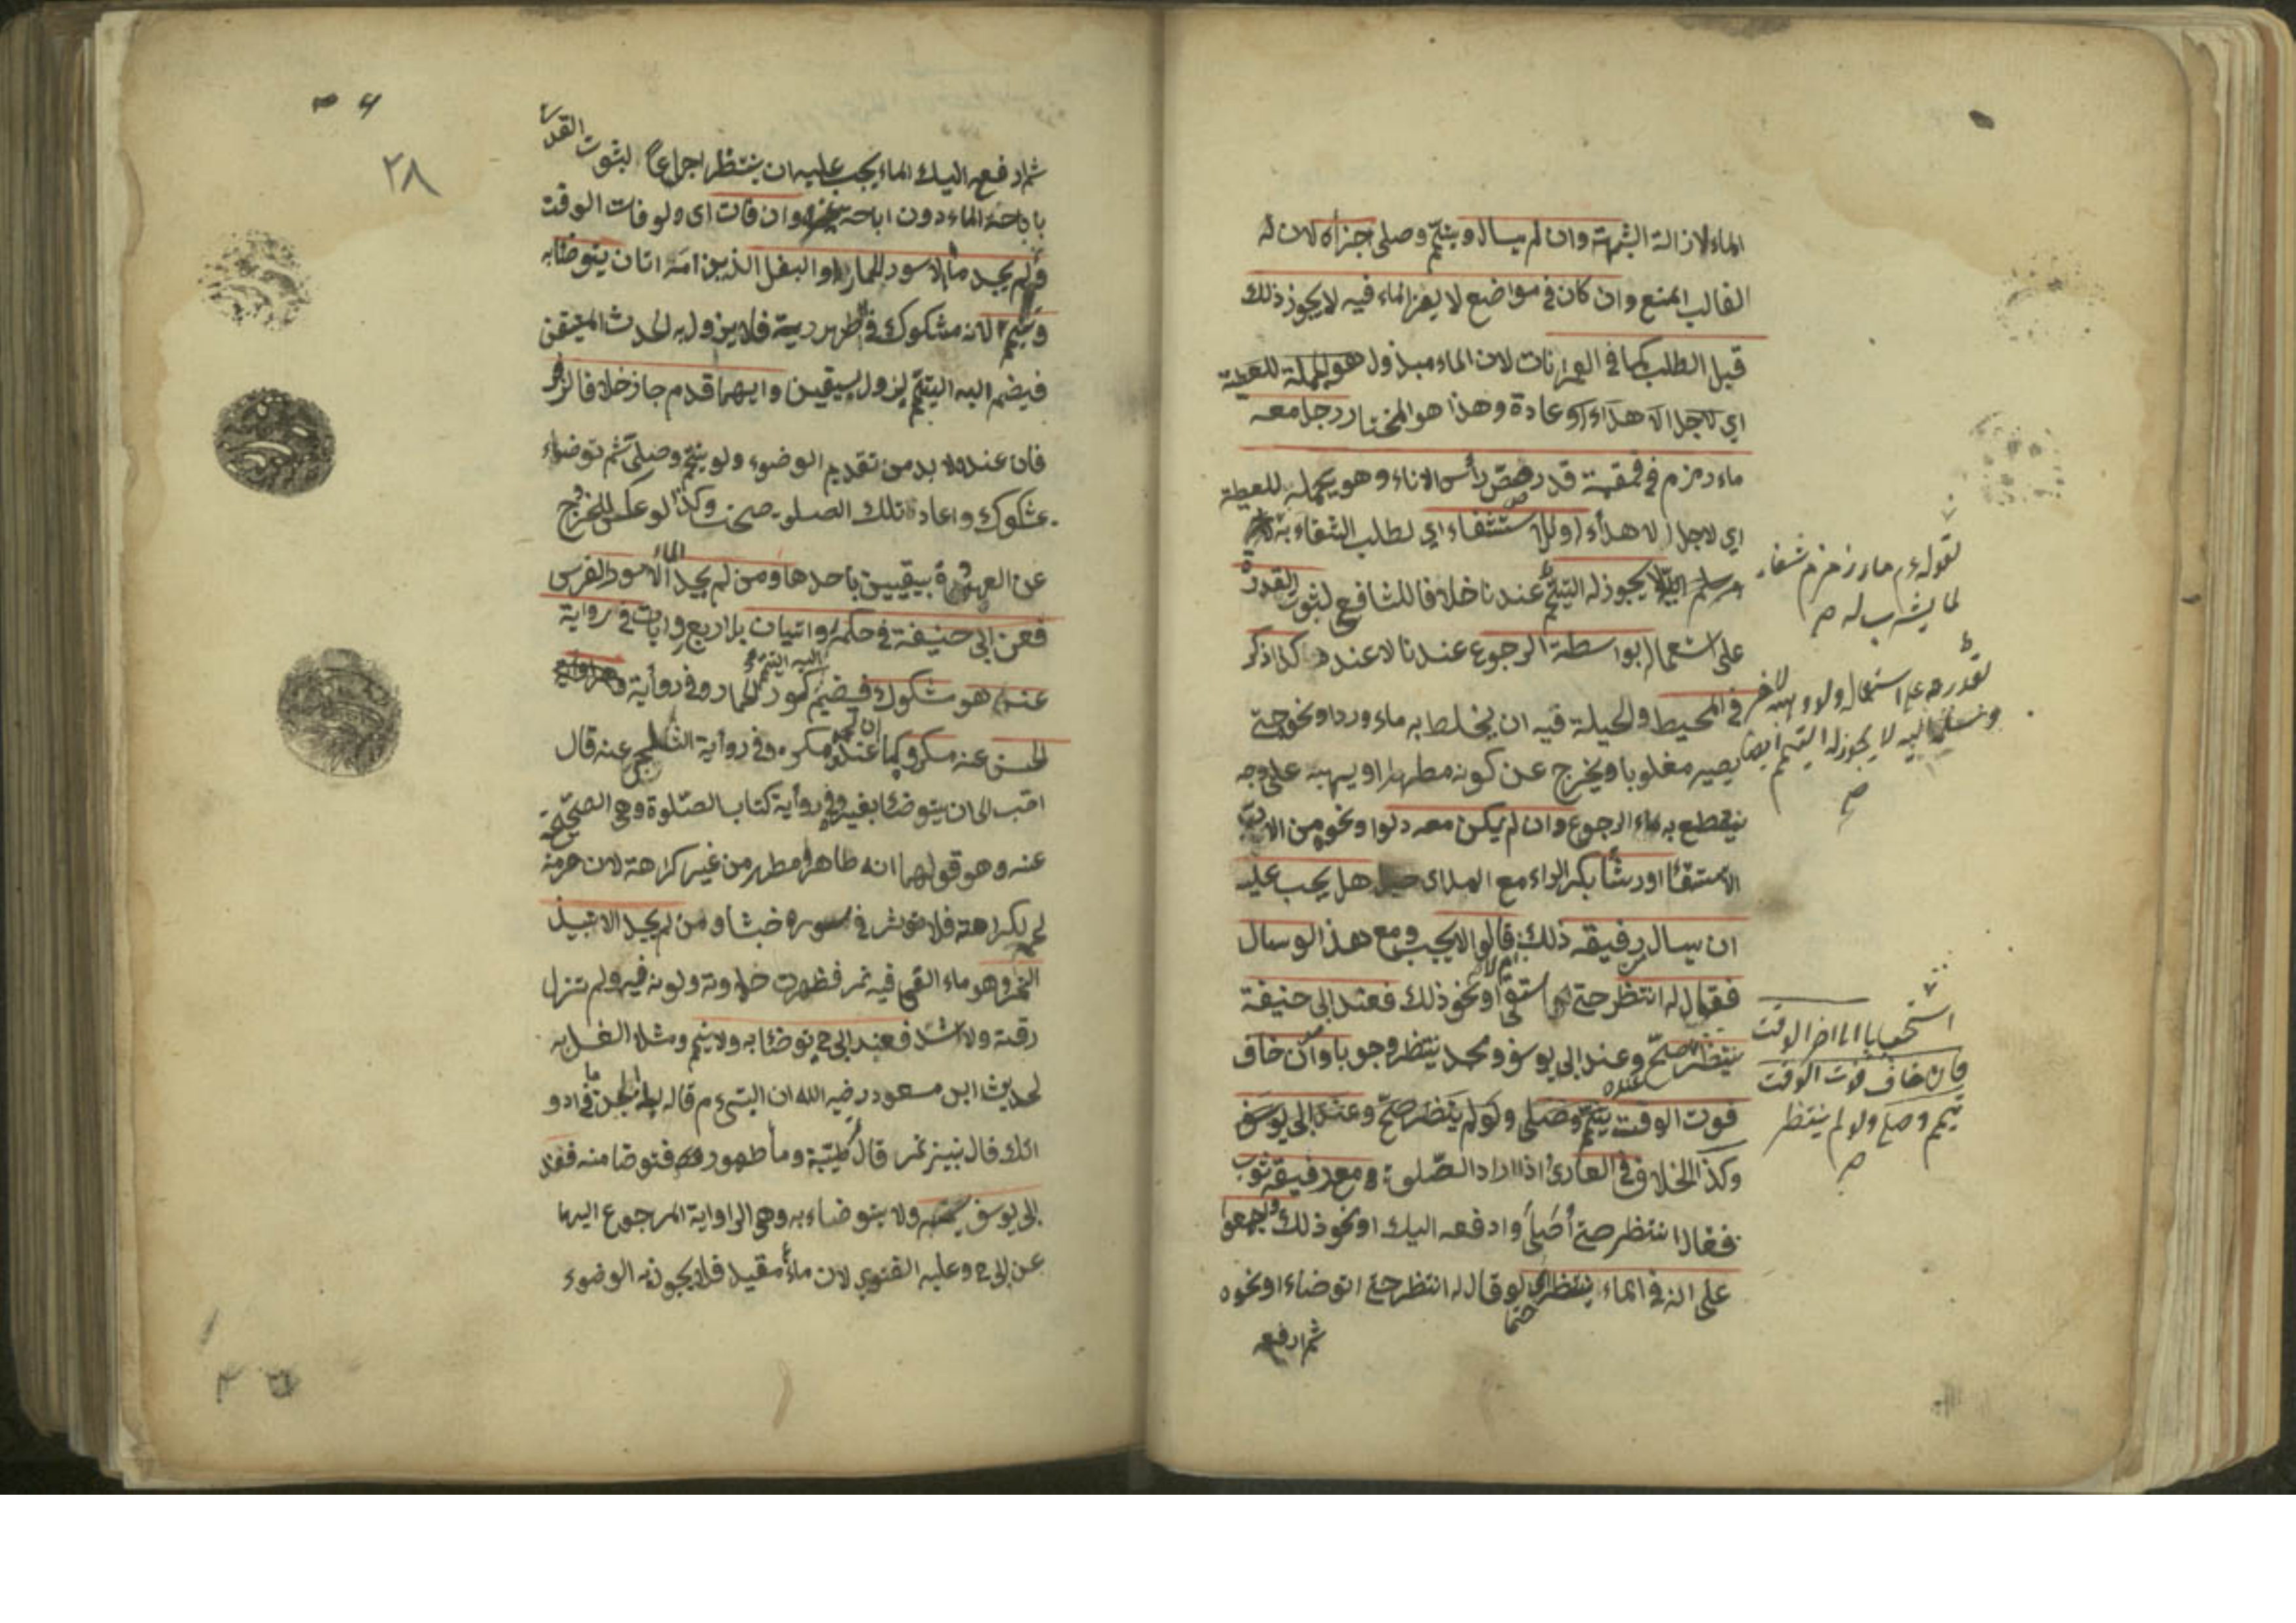 الماء لازالة الشبهة وان لم يسال ويتيمّم وصلى اجزاه لان له
الغالب المنع وان كان في مواضع لا يعز الماء فيه لا يجوز ذلك
قبل الطلب كما في العمرانات لان الماء مبذول
اي لاجل الاهداء او عادة وهذا هو المختار رجل معه
ماء زمزم في قمقمة قد رصّص رأس الاناء وهو يحمله للعطية
اي لاجل الاهداء او للاستشفاء اي لطلب الشفاء به
لا يجوز له التيمّم عندنا خلافا للشافعي لثبوت القدرة
على استعماله بواسطة الرجوع عندنا لا عنده كذا ذكر
في المحيط والحيلة فيه ان يخلط به ماء ورد او نحوه حتى
يصير مغلوبا ويخرج عن كونه مطهرا او يهبه على وجه
ينقطع به الرجوع وان لم يكن معه دلوا ونحوه من الات
الاستقاء او رشا بكسر الراء مع المد اي هل يجب عليه
ان يسال رفيقه ذلك قالوا لا يجب ومع هذا لو سال
فقال له انتظر حتى استقي او نحو ذلك فعند ابي حنيفة
ينتظر وعند ابي يوسف ومحمد ينتظر وجوبا وان خاف
فوت الوقت يتيمّم وصلى ولو لم ينتظر صحّ وعند ابي يوسف
وكذا الخلاف في العاري اذا اراد الصلوة ومع رفيقه ثوب
فقال انتظر حتى أصلي وادفعه اليك او نحو ذلك واجمعوا
على انه في الماء ينتظر اي لو قال له انتظر حتى اتوضاء او نحوه
ثم ادفعه
لقوله ءم ماء زمزم شفاء
لما يشرب له
لقدرته على استعماله ولو وهبه لاخر
وسلّم اليه لا يجوز له التيمم ايضا
استحبابا الى اخر الوقت
فان خاف فوت الوقت
تيمم وصلى ولو لم ينتظر
٢٨
ثم ادفعه اليك الماء يجب عليه ان ينتظر اجماعا لثبوت القدرة
باباحة الماء دون اباحة غيره وان فات اي ولو فات الوقت
ولم يجد ماء الا سور الحمار او البغل الذي امه اتان يتوضا به
ويتيمم لانه مشكوك في طهوريته فلا يزول به الحدث المتيقن
فيضم اليه التيمّم ليزول بيقين وايهما قدم جاز خلافا لزفر
فان عنده لا بد من تقديم الوضوء ولو يتيمّم وصلى ثم توضاء
بمشكوك واعاد تلك الصلوة صحت وكذا لو عكس للخروج
عن العهدة بيقين باحدهما ومن لم يجد الا سور الفرس
فعن ابي حنيفة في حكمه روايتان بل اربع روايات في رواية
عنه هو مشكوك فيضم اليه التيمم كسور الحمار وفي رواية
الحسن عنه مكروه كما ان لحمه عنده مكروه وفي رواية عنه قال
احب الي ان يتوضا بغيره وفي رواية كتاب الصّلوة وهي الصحيحة
عنه وهو قولهما انه طاهر ومطهر من غير كراهة لان حرمة
لحمه لكرامته فلا تؤثر في سوره خبثا ومن لم يجد الا نبيذ
التمر وهو ماء القي فيه تمر فظهرت حلاوته ولونه فيه ولم تزل
رقته ولا اشتد فعند ابي ح يتوضا به ولا يتيمم ومثله الغسل به
لحديث ابن مسعود رضي الله ان النبي ءم قال له ليلة الجن ما في ادو
اتك قال نبيذ تمر قال تمرة طيّبة وماء طهور فتوضا منه فعند
ابي يوسف يتيمم ولا يتوضاء به وهي الرواية المرجوع اليها
عن ابي ح وعليه الفتوي لان ماء مقيد فلا يجوز به الوضوء